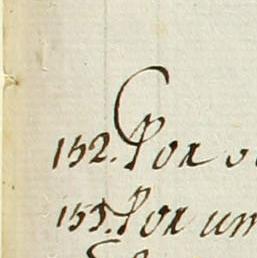 152. Por
153. Por um